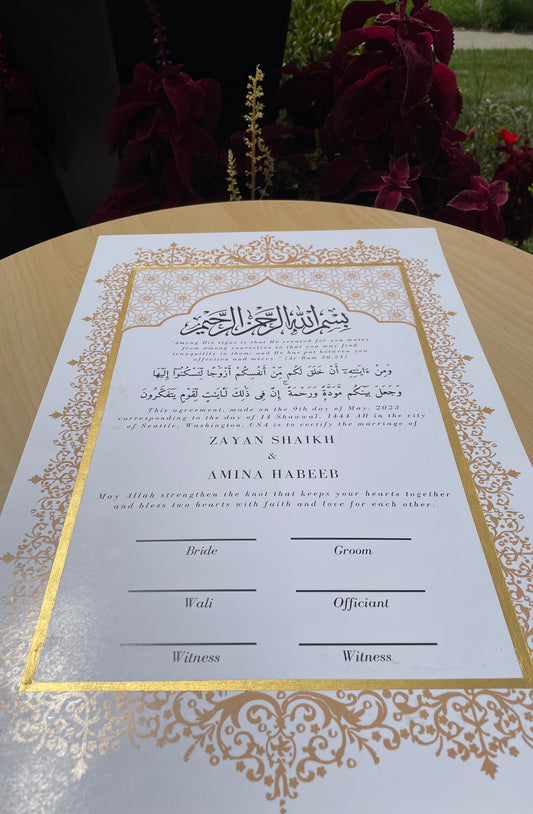 بِسْمِ اللهِ الرَّحْمٰنِ الرَّحِيْمِ
"Among His signs is that He created for you mates
from among yourselves so that you may find
tranquility in them; and He has put between you
affection and mercy." (Ar Rom 30:21)
وَمِنْ ءَايَـٰتِهِۦٓ أَنْ خَلَقَ لَكُم مِّنْ أَنفُسِكُمْ أَزْوَٰجًا لِّتَسْكُنُوٓا۟ إِلَيْهَا
وَجَعَلَ بَيْنَكُم مَّوَدَّةً وَرَحْمَةً ۚ إِنَّ فِى ذَٰلِكَ لَـَٔايَـٰتٍ لِّقَوْمٍ يَتَفَكَّرُونَ
This agreement, made on the 9th day of May, 2023
corresponding to the day of 14 Shawwal, 1444 AH in the city
of Seattle, Washington, USA is to certify the marriage of
ZAYAN SHAIKH
&
AMINA HABEEB
May Allah strengthen the knot that keeps your hearts together
and bless two hearts with faith and love for each other.
Bride Groom
Wali Officiant
Witness Witness